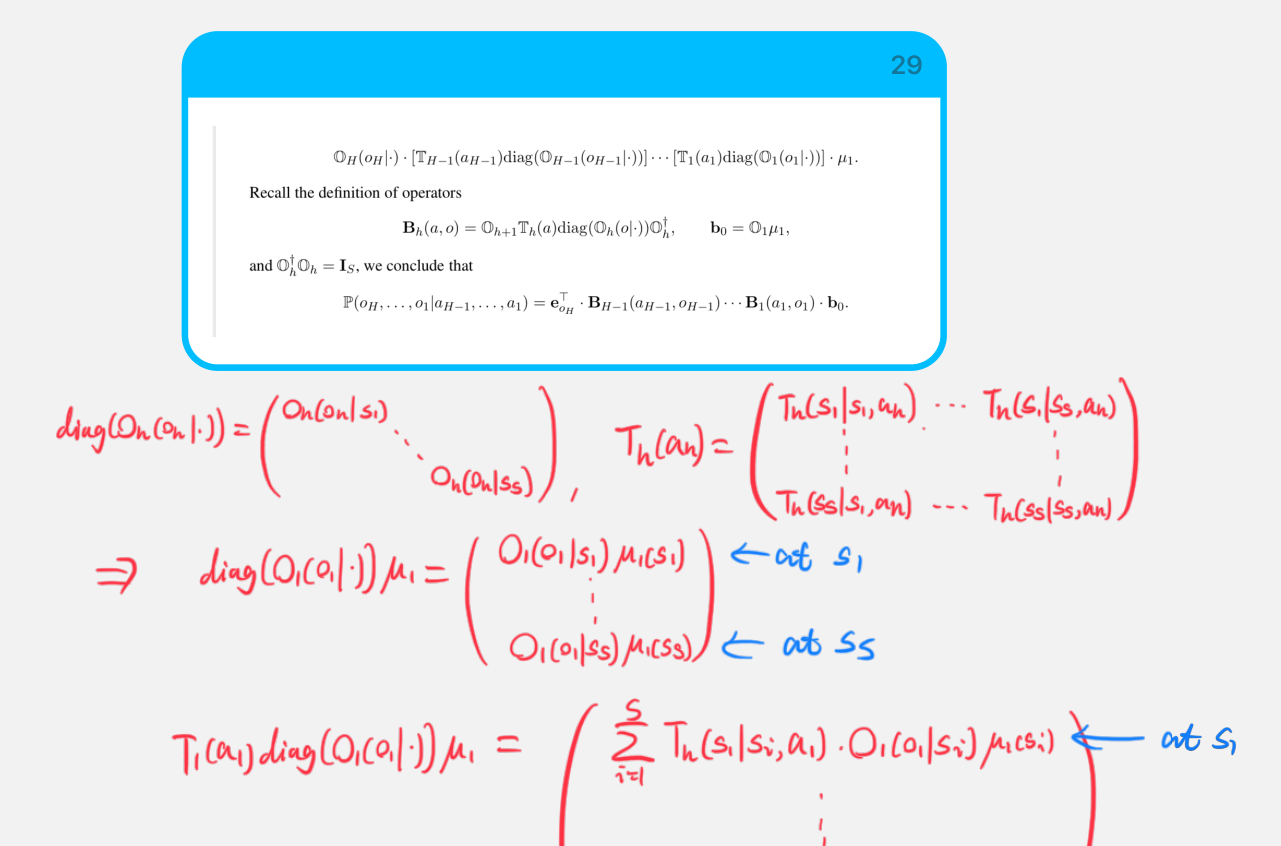 29
𝕆_H(o_H|·) · [𝕋_{H−1}(a_{H−1})diag(𝕆_{H−1}(o_{H−1}|·))] ··· [𝕋_1(a_1)diag(𝕆_1(o_1|·))] · μ_1.
Recall the definition of operators
𝐁_h(a, o) = 𝕆_{h+1}𝕋_h(a)diag(𝕆_h(o|·))𝕆_h^†, 𝐛_0 = 𝕆_1μ_1,
and 𝕆_h^†𝕆_h = 𝐈_S, we conclude that
ℙ(o_H, . . . , o_1|a_{H−1}, . . . , a_1) = 𝐞_{o_H}^⊤ · 𝐁_{H−1}(a_{H−1}, o_{H−1}) ··· 𝐁_1(a_1, o_1) · 𝐛_0.
diag(O_h(o_h|·)) = ( O_h(o_h|s_1) ⋱ O_h(o_h|s_S) ) , T_h(a_h) = ( T_h(s_1|s_1,a_h) ··· T_h(s_1|s_S,a_h) ⋮ ⋮ T_h(s_S|s_1,a_h) ··· T_h(s_S|s_S,a_h) )
⇒ diag(O_1(o_1|·)) μ_1 = ( O_1(o_1|s_1) μ_1(s_1) ← at s_1
⋮
O_1(o_1|s_S) μ_1(s_S) ) ← at s_S
T_1(a_1) diag(O_1(o_1|·)) μ_1 = ( ∑_{i=1}^{S} T_h(s_1|s_i,a_1) · O_1(o_1|s_i) μ_1(s_i) ) ← at s_1
⋮